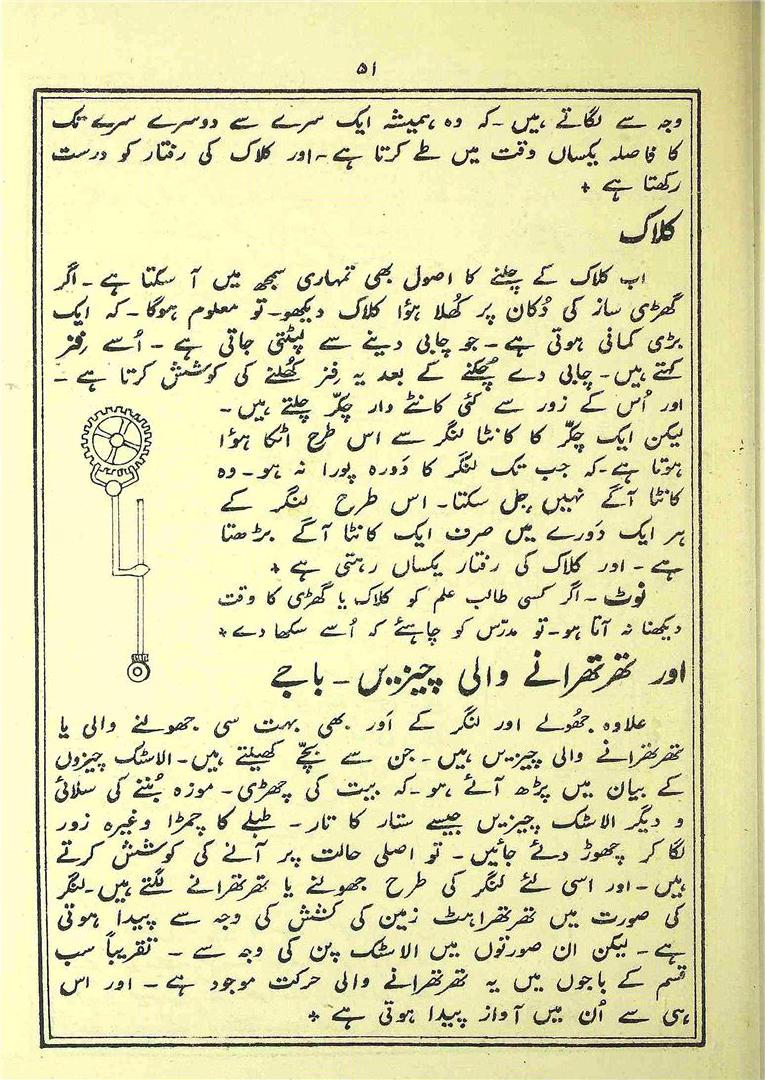 ۵۱
وجہ سے لگاتے ہیں۔ کہ وہ ہمیشہ ایک سرے سے دوسرے سرے تک
کا فاصلہ یکساں وقت میں طے کرتا ہے۔ اور کلاک کی رفتار کو درست
رکھتا ہے +
کلاک
اب کلاک کے چلنے کا اصول بھی تمہاری سمجھ میں آ سکتا ہے۔ اگر
گھڑی ساز کی دُکان پر کُھلا ہؤا کلاک دیکھو۔ تو معلوم ہوگا۔ کہ ایک
بڑی کمانی ہوتی ہے۔ جو چابی دینے سے لپٹتی جاتی ہے۔ اُسے رِفنر
کہتے ہیں۔ چابی دے چُکنے کے بعد یہ رِفنر کُھلنے کی کوشش کرتا ہے۔
اور اُس کے زور سے کئی کانٹے دار چکّر چلتے ہیں۔
لیکن ایک چکّر کا کانٹا لنگر سے اس طرح اٹکا ہؤا
ہوتا ہے۔ کہ جب تک لنگر کا دَورہ پورا نہ ہو۔ وہ
کانٹا آگے نہیں چل سکتا۔ اس طرح لنگر کے
ہر ایک دَورے میں صرف ایک کانٹا آگے بڑھتا
ہے۔ اور کلاک کی رفتار یکساں رہتی ہے +
نوٹ۔ اگر کسی طالب علم کو کلاک یا گھڑی کا وقت
دیکھنا نہ آتا ہو۔ تو مدرّس کو چاہئے کہ اُسے سکھا دے +
اور تھرتھرانے والی چیزیں۔ باجے
علاوہ جُھولے اور لنگر کے اَور بھی بہت سی جھولنے والی یا
تھرتھرانے والی چیزیں ہیں۔ جن سے بچّے کھیلتے ہیں۔ الاسٹک چیزوں
کے بیان میں پڑھ آئے ہو۔ کہ بیت کی چھڑی۔ موزہ بُننے کی سلائی
و دیگر الاسٹک چیزیں جیسے ستار کا تار۔ طبلے کا چمڑا وغیرہ زور
لگا کر چھوڑ دئے جائیں۔ تو اصلی حالت پر آنے کی کوشش کرتے
ہیں۔ اور اسی لئے لنگر کی طرح جھولنے یا تھرتھرانے لگتے ہیں۔ لنگر
کی صورت میں تھرتھراہٹ زمین کی کشش کی وجہ سے پیدا ہوتی
ہے۔ لیکن ان صورتوں میں الاسٹک پن کی وجہ سے۔ تقریباً سب
قسم کے باجوں میں یہ تھرتھرانے والی حرکت موجود ہے۔ اور اس
ہی سے اُن میں آواز پیدا ہوتی ہے +